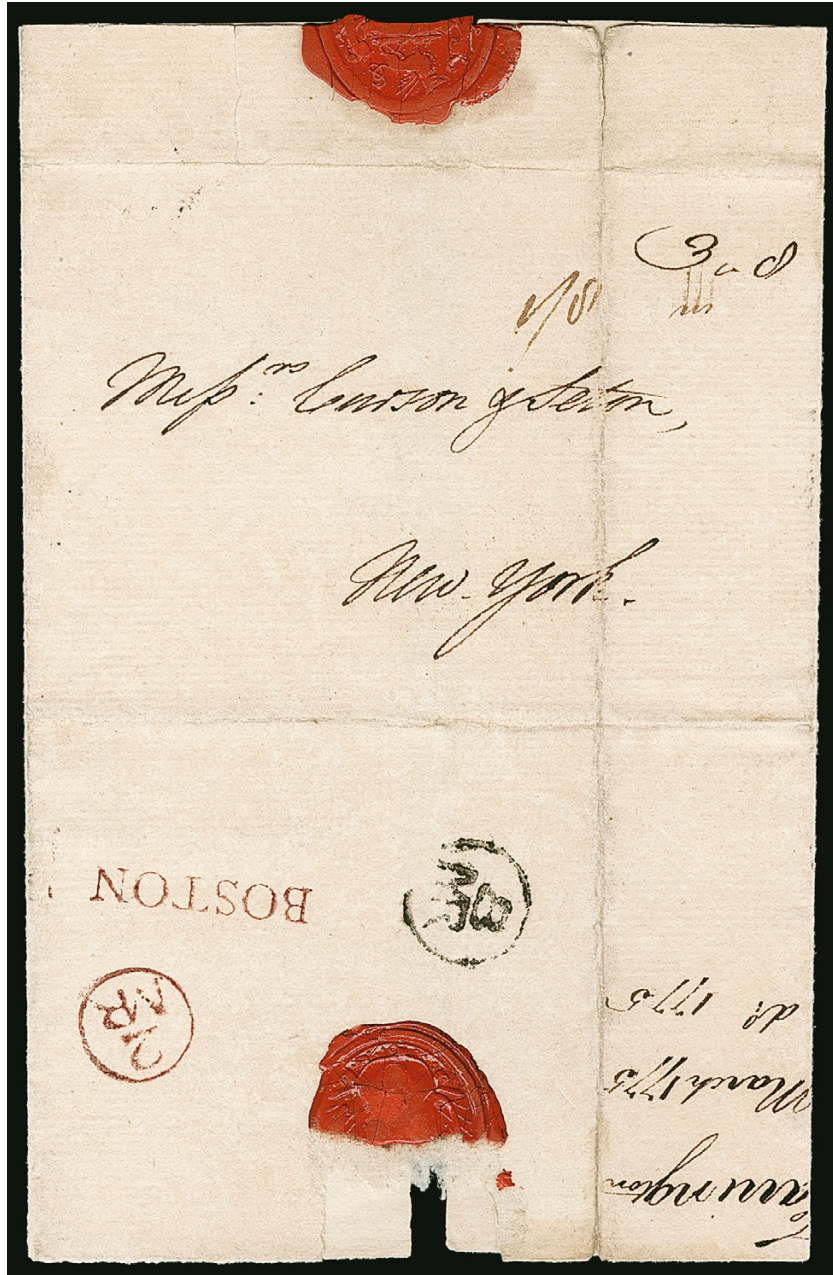 3 " 8
1/8
Mess.rs Curson & Seton,
New-York.
BOSTON
2
MR
March 1775
do: 1775